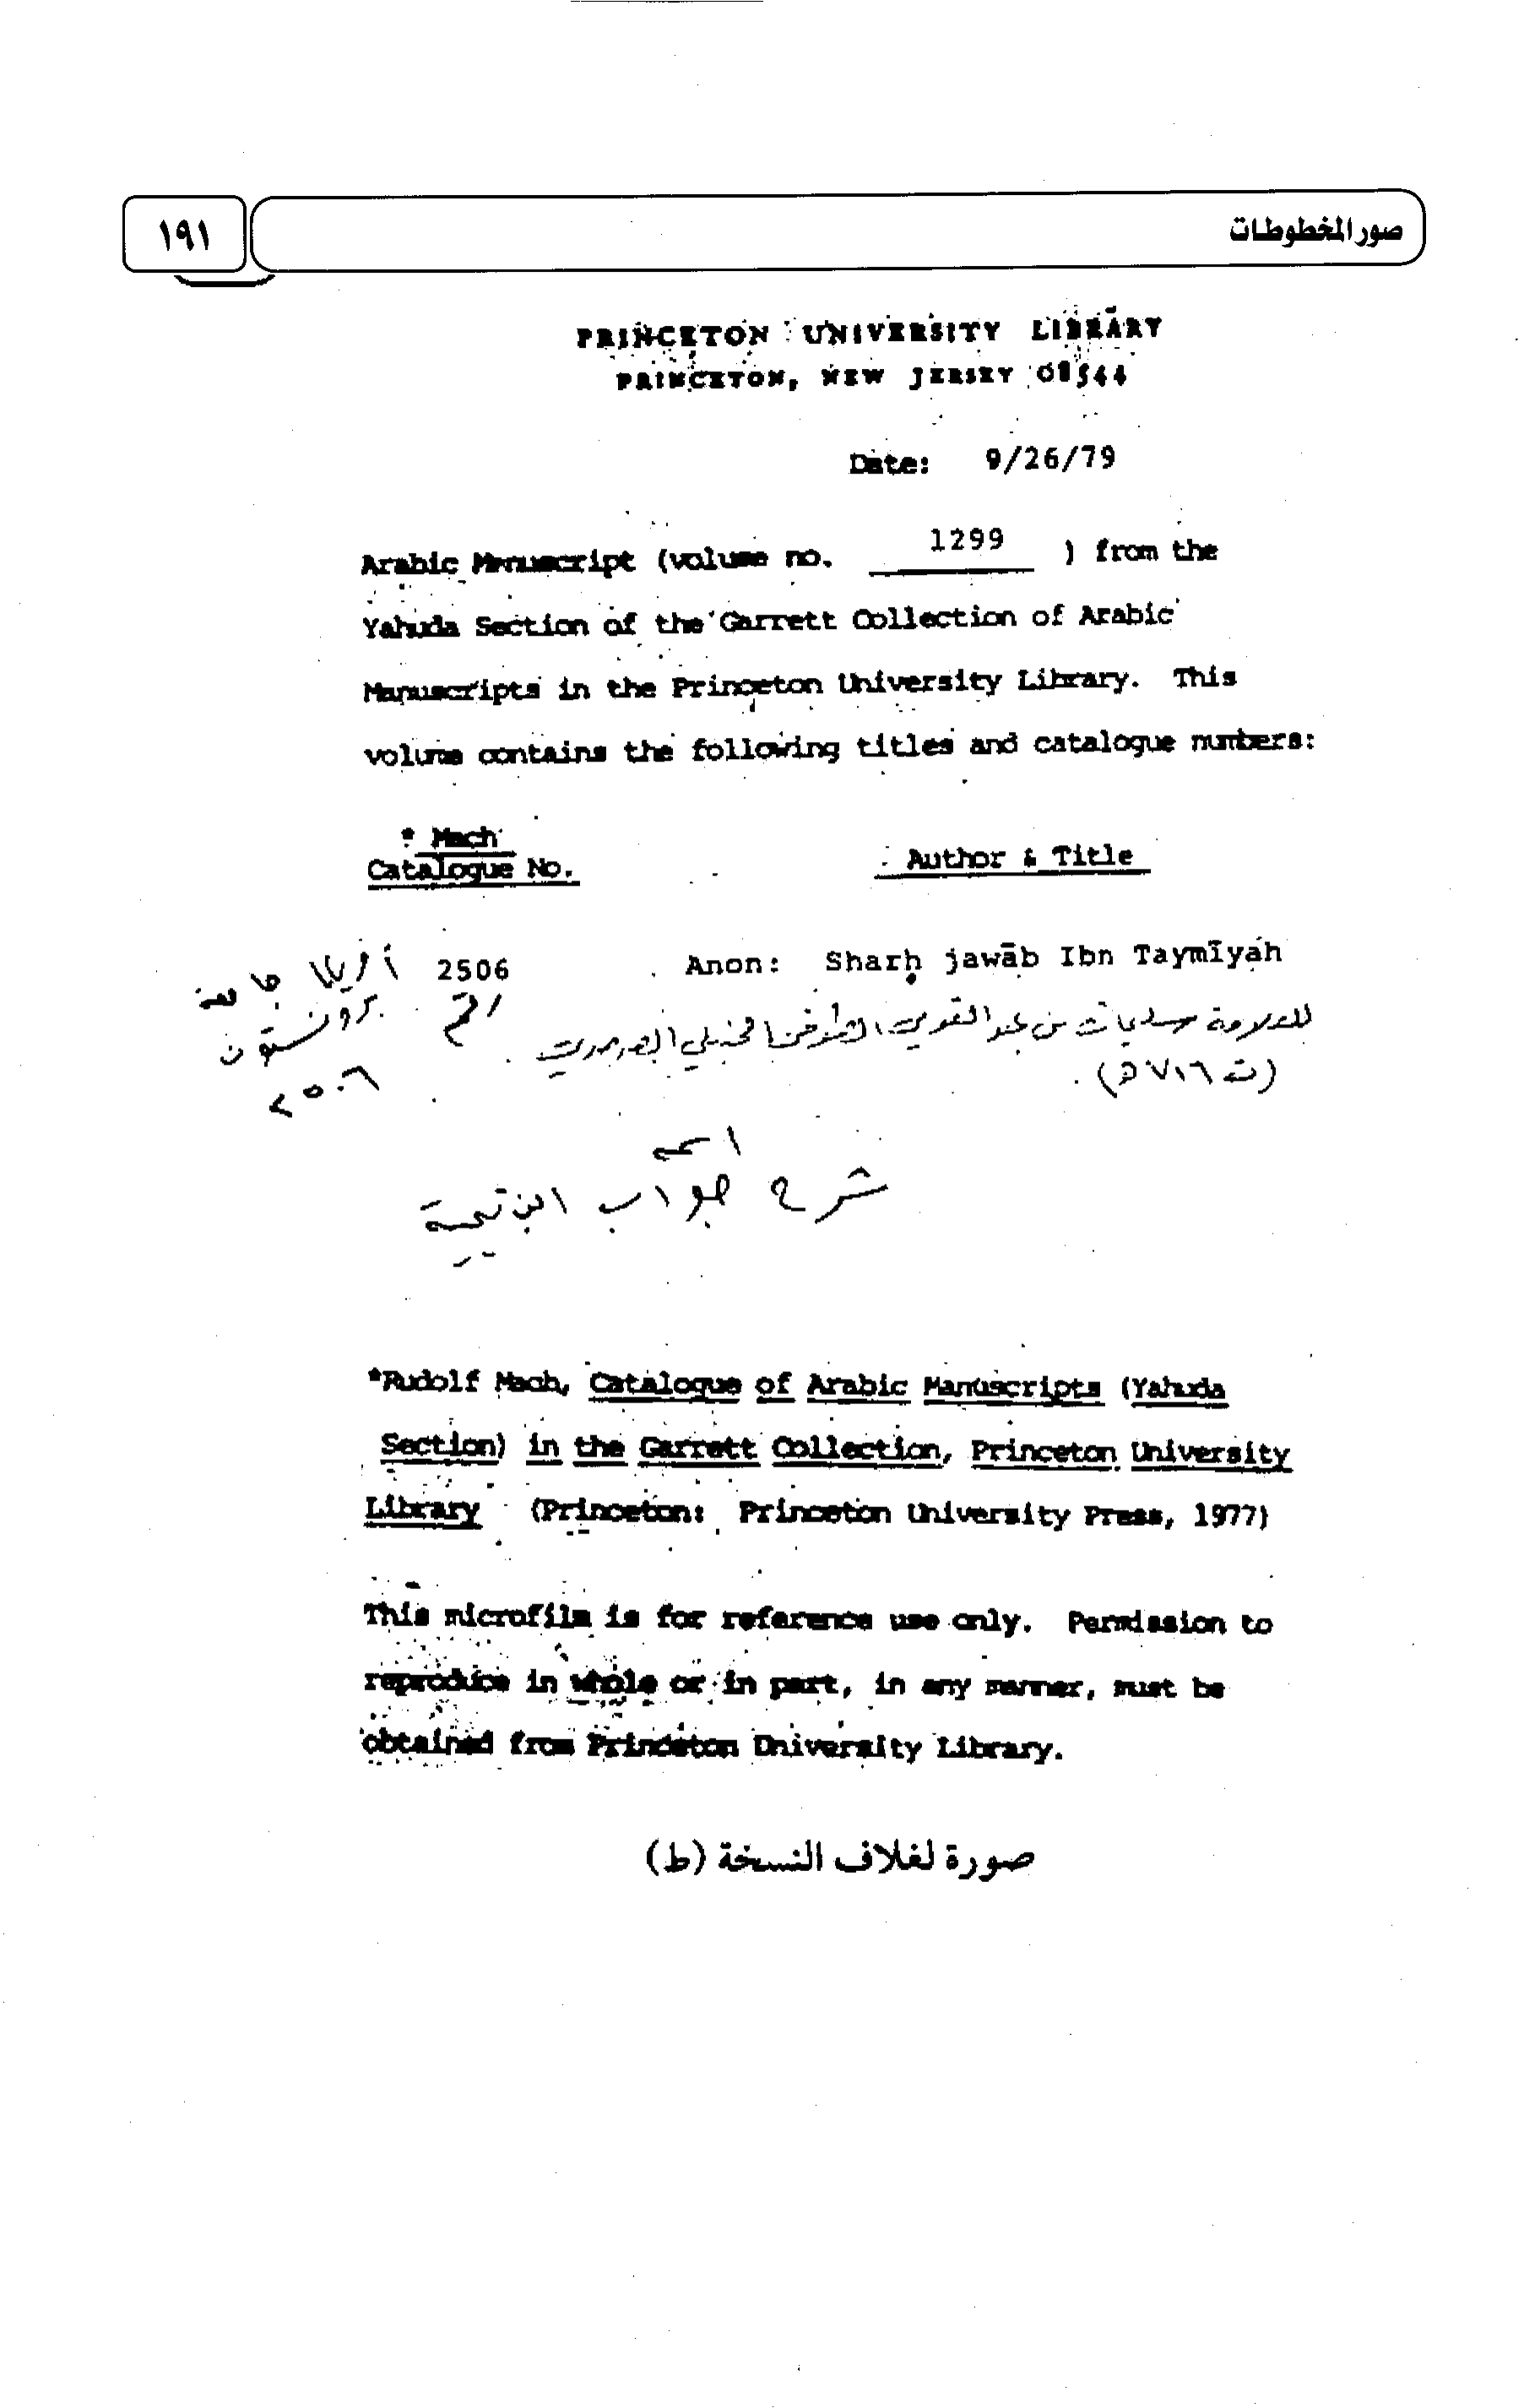 صور المخطوطات
١٩١
PRINCETON UNIVERSITY LIBRARY
PRINCETON, NEW JERSEY 08544
Date: 9/26/79
Arabic Manuscript (volume no. 1299 ) from the
Yahuda Section of the Garrett Collection of Arabic
Manuscripts in the Princeton University Library. This
volume contains the following titles and catalogue numbers:
* Mach
Catalogue No.
Author & Title
2506
Anon: Sharḥ jawāb Ibn Taymīyah
للعلامة سليمان بن عبد القوي الطوفي الحنبلي
(ت ٧١٦ه).
جامعة
برونستون
رقم
٢٥٠٦
اسمه
شرح جواب ابن تيمية
*Rudolf Mach, Catalogue of Arabic Manuscripts (Yahuda
Section) in the Garrett Collection, Princeton University
Library (Princeton: Princeton University Press, 1977)
This microfilm is for reference use only. Permission to
reproduce in whole or in part, in any manner, must be
obtained from Princeton University Library.
صورة لغلاف النسخة (ط)